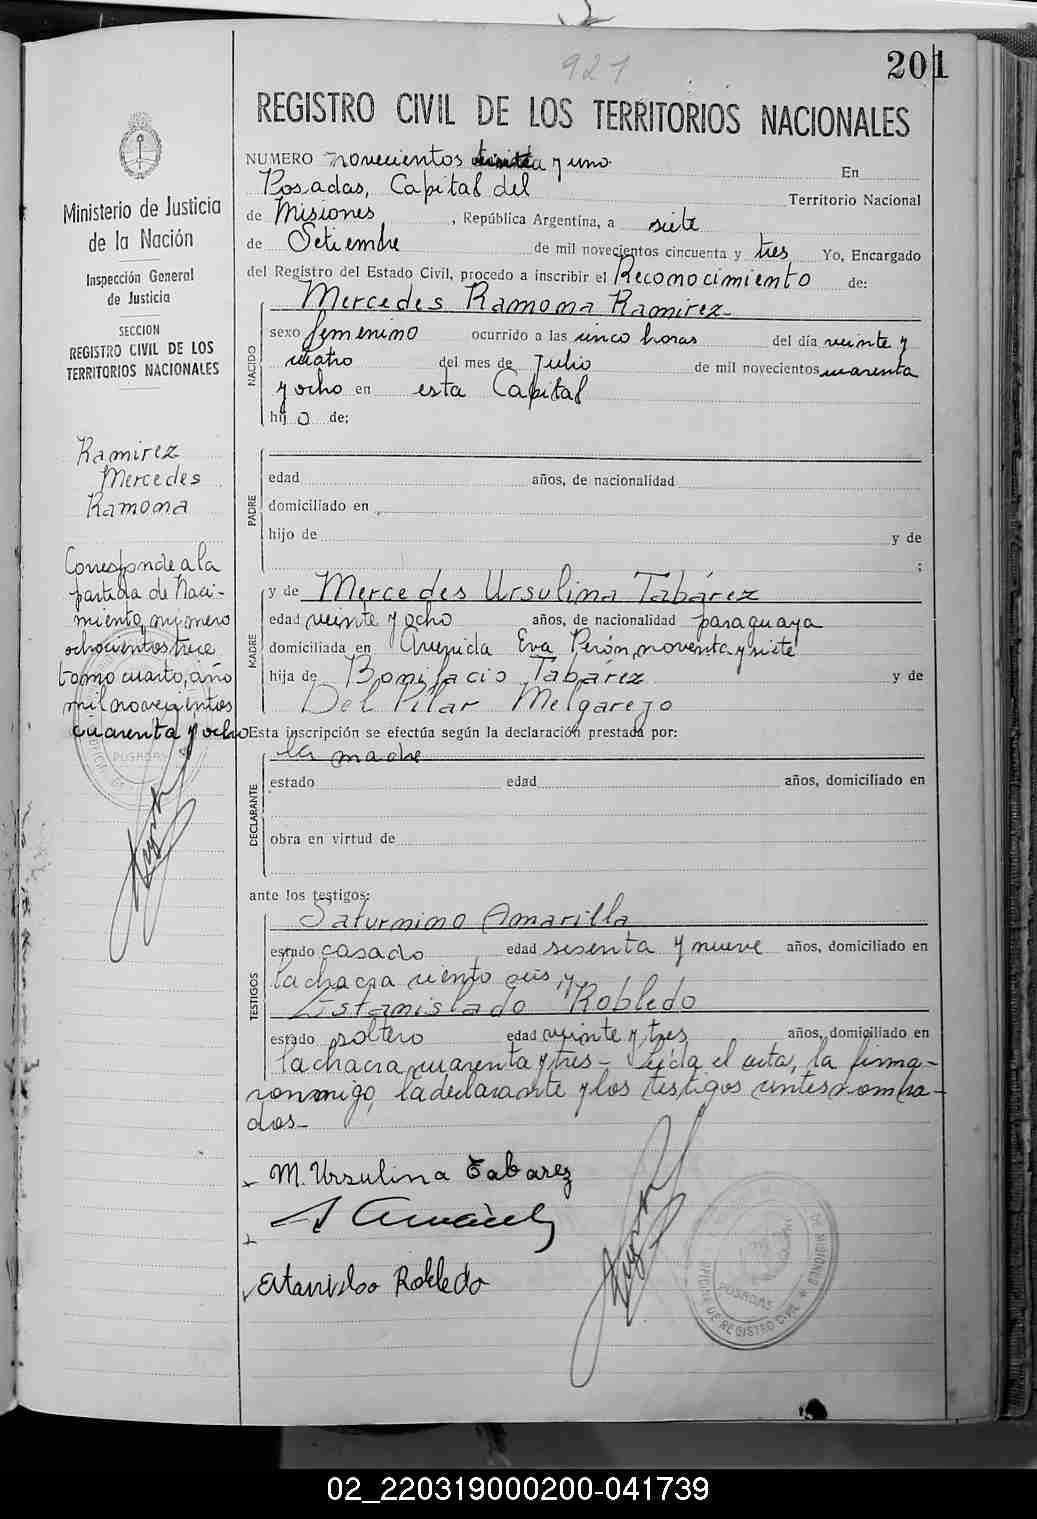 921
201
REGISTRO CIVIL DE LOS TERRITORIOS NACIONALES
Ministerio de Justicia
de la Nación
Inspección General
de Justicia
SECCION
REGISTRO CIVIL DE LOS
TERRITORIOS NACIONALES
Ramirez
Mercedes
Ramona
Corresponde a la
partida de Naci-
miento, número
ochocientos trece
tomo cuarto, año
mil novecientos
cuarenta y ocho
POSADAS
NUMERO novecientos y uno En
Posadas, Capital del Territorio Nacional
de Misiones, República Argentina, a siete
de Setiembre de mil novecientos cincuenta y tres Yo, Encargado
del Registro del Estado Civil, procedo a inscribir el Reconocimiento de:
Mercedes Ramona Ramirez-
NACIDO
sexo femenino ocurrido a las cinco horas del día veinte y
cuatro del mes de Julio de mil novecientos cuarenta
y ocho en esta Capital
hij a de:
PADRE
edad años, de nacionalidad
domiciliado en
hijo de y de
;
MADRE
y de Mercedes Ursulina Tabárez
edad veinte y ocho años, de nacionalidad paraguaya
domiciliada en Avenida Eva Perón, noventa y siete
hija de Bonifacio Tabárez y de
Del Pilar Melgarejo
Esta inscripción se efectúa según la declaración prestada por:
DECLARANTE
la madre
estado edad años, domiciliado en
obra en virtud de
ante los testigos:
TESTIGOS
Saturnino Amarilla
estado casado edad sesenta y nueve años, domiciliado en
la chacra ciento seis, y
Estanislado Robledo
estado soltero edad veinte y tres años, domiciliado en
la chacra cuarenta y tres - Leida el acta, la firma-
conmigo, la declarante y los testigos antes nombra-
dos-
M. Ursulina Tabarez
Estanislao Robledo
OFICINA DE REGISTRO CIVIL
POSADAS
DE MISIONES
02_220319000200-041739